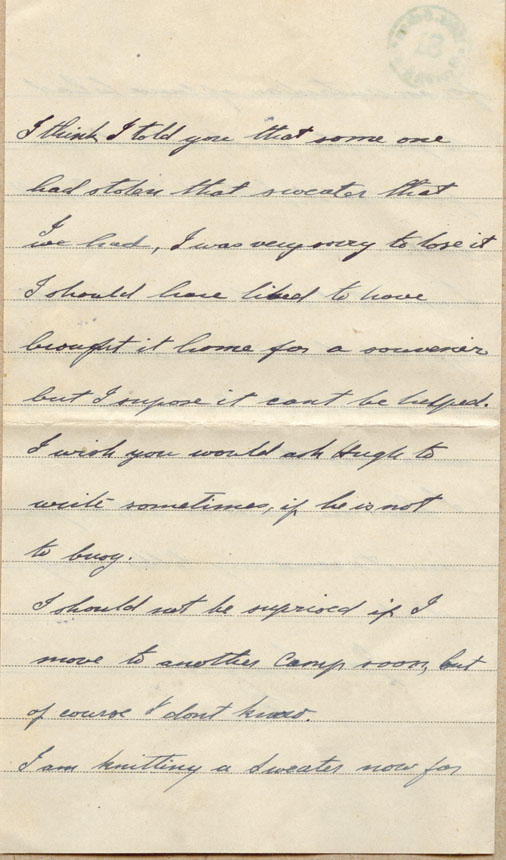 I think I told you that some one
had stolen that sweater that
I've had, I was very sorry to lose it
I should have liked to have
brought it home for a souvenir
but I supose it cant be helped.
I wish you would ask Hugh to
write sometimes, if he is not
to busy.
I should not be suprised if I
move to another Camp soon, but
of course I dont know.
I am knitting a sweater now for